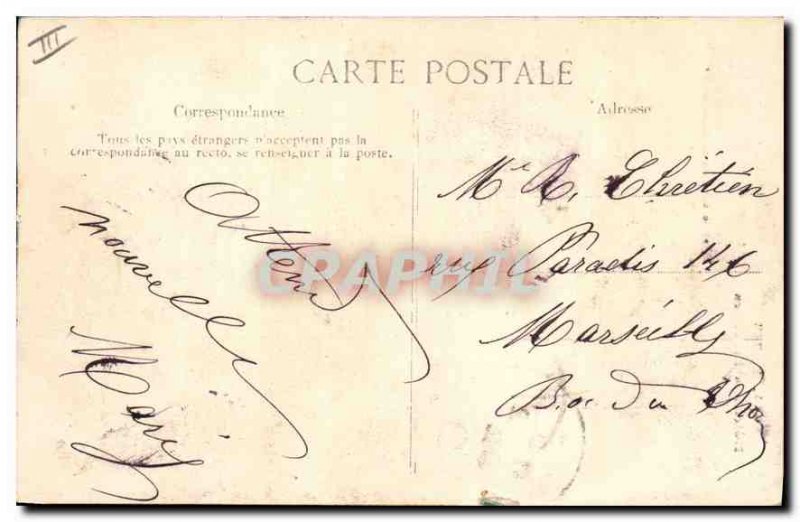 III
CARTE POSTALE
Correspondance
Tous les pays étrangers n'acceptent pas la
correspondance au recto, se renseigner à la poste.
Attend
nouvelles
Marie
Adresse
Mle R. Chrétien
rue Paradis 146
Marseille
B. du Rho
GRAPHIL